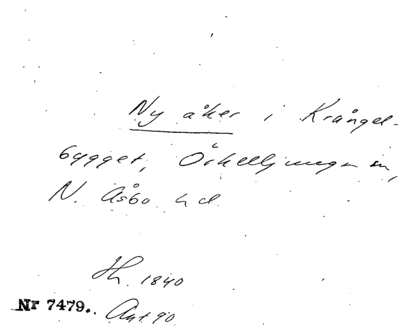 Ny åker i Krångel-
bygget, Örkelljunga sn,
N. Åsbo hd
Hh. 1840
Nr 7479. Ant 90